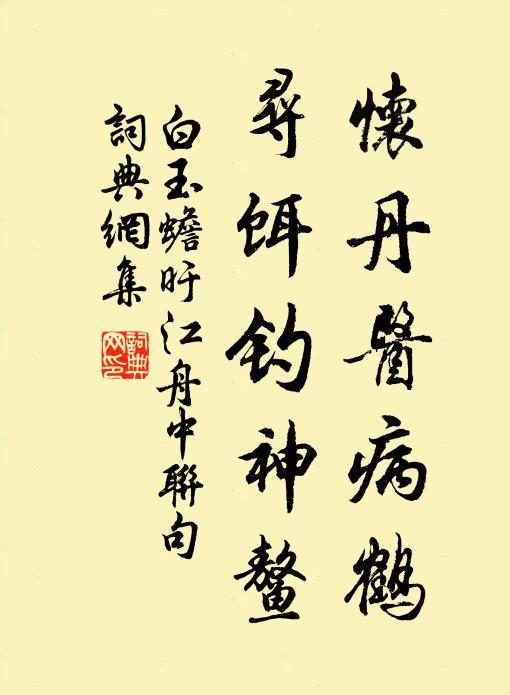 懷丹醫病鶴
尋餌釣神鼇
白玉蟾旴江舟中聯句
詞典網集
詞典
网印